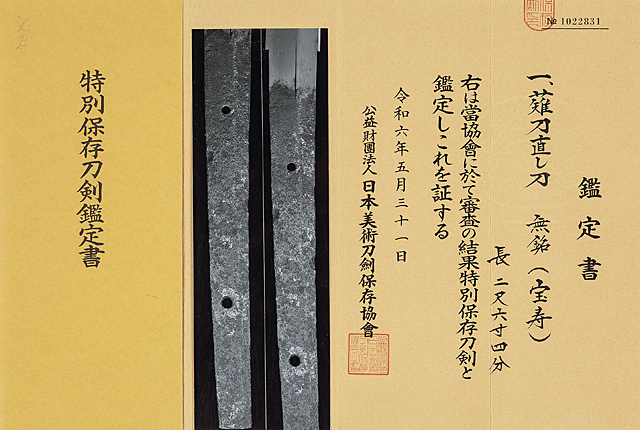 № 1022831
鑑定書
一、薙刀直し刀 無銘(宝寿)
長二尺六寸四分
右は當協會に於て審査の結果特別保存刀剣と
鑑定しこれを証する
令和六年五月三十一日
公益財團法人日本美術刀剣保存協會
特別保存刀剣鑑定書